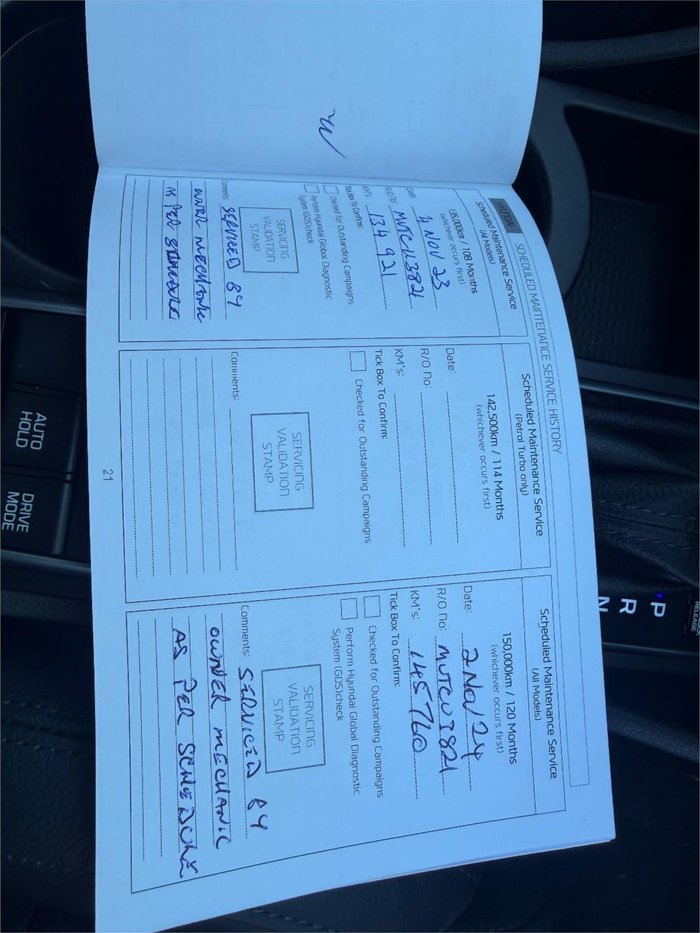 HYUNDAI SCHEDULED MAINTENANCE SERVICE HISTORY
Scheduled Maintenance Service
(All Models)
135,000km / 108 Months
(whichever occurs first)
Date: 1 NOV 23
R/O No: MVTCU3821
KM's: 134 921
Tick Box To Confirm:
Checked for Outstanding Campaigns
Perform Hyundai Global Diagnostic
System (GDS)check
SERVICING
VALIDATION
STAMP
Comments: SERVICED BY
OWNER MECHANIC
AS PER SCHEDULE
Scheduled Maintenance Service
(Petrol Turbo only)
142,500km / 114 Months
(whichever occurs first)
Date:
R/O No:
KM's:
Tick Box To Confirm:
Checked for Outstanding Campaigns
SERVICING
VALIDATION
STAMP
Comments:
Scheduled Maintenance Service
(All Models)
150,000km / 120 Months
(whichever occurs first)
Date: 2 NOV 24
R/O No: MVTCU3821
KM's: 145760
Tick Box To Confirm:
Checked for Outstanding Campaigns
Perform Hyundai Global Diagnostic
System (GDS)check
SERVICING
VALIDATION
STAMP
Comments: SERVICED BY
OWNER MECHANIC
AS PER SCHEDULE
21
AUTO
HOLD
DRIVE
MODE
P
R
N
RELEASE